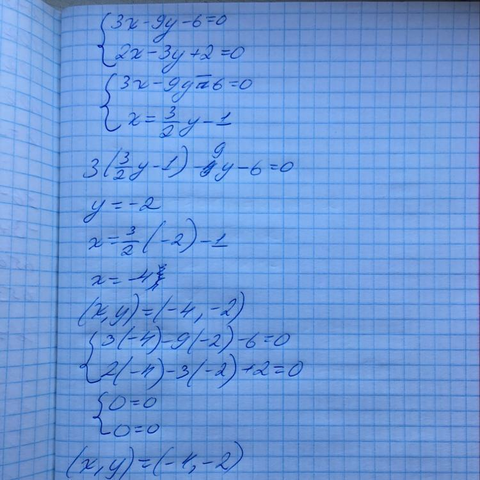 {3x-9y-6=0
{2x-3y+2=0
{3x-9y-6=0
{x=3/2y-1
3(3/2y-1)-9y-6=0
y=-2
x=3/2(-2)-1
x=-4
(x,y)=(-4,-2)
{3(-4)-9(-2)-6=0
{2(-4)-3(-2)+2=0
{0=0
{0=0
(x,y)=(-4,-2)